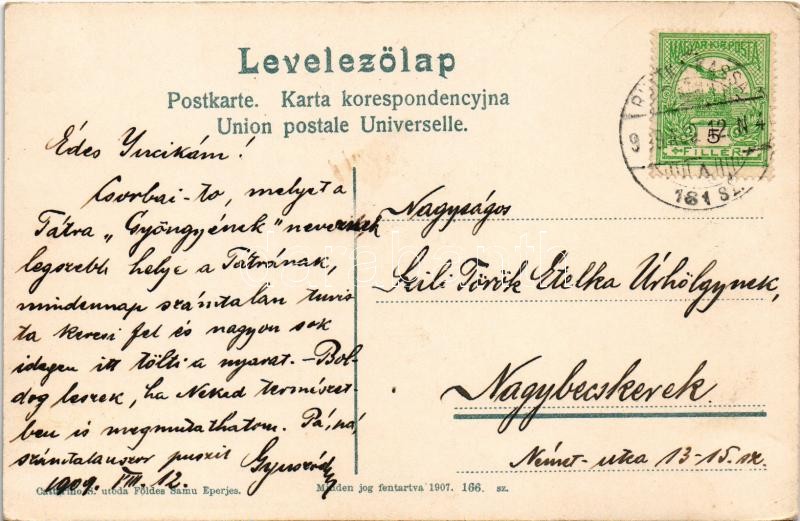 Levelezőlap
Postkarte. Karta korespondencyjna
Union postale Universelle.
MAGYAR KIR. POSTA
5
FILLÉR
12 N 4
9
181 SZ.
Édes Yucikám!
Csorbai-to, melyet a
Tátra „Gyöngyének" neveznek
legszebb helye a Tátrának,
mindennap számtalan turis
ta keresi fel és nagyon sok
idegen itt tölti a nyarat. – Bol-
dog leszek, ha Neked természet-
ben is megmutathatom. Pá, pá,
számtalanszor puszil Gyuszód
1909. VIII. 12.
Nagyságos
Szili Török Etelka Úrhölgynek,
Nagybecskerek.
Német-utca 13-15. sz.
Cattarino S. utóda Földes Samu Eperjes.
Minden jog fentartva 1907. 166. sz.